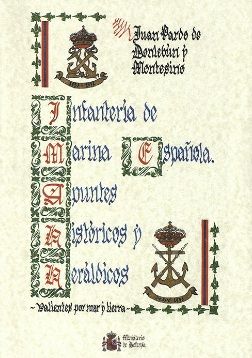 Juan Pardo de
Donlebún y
Montesino
Infantería de
Marina Española.
Apuntes
Históricos y
Heráldicos
~Valientes por mar y tierra~
Ministerio
de Defensa